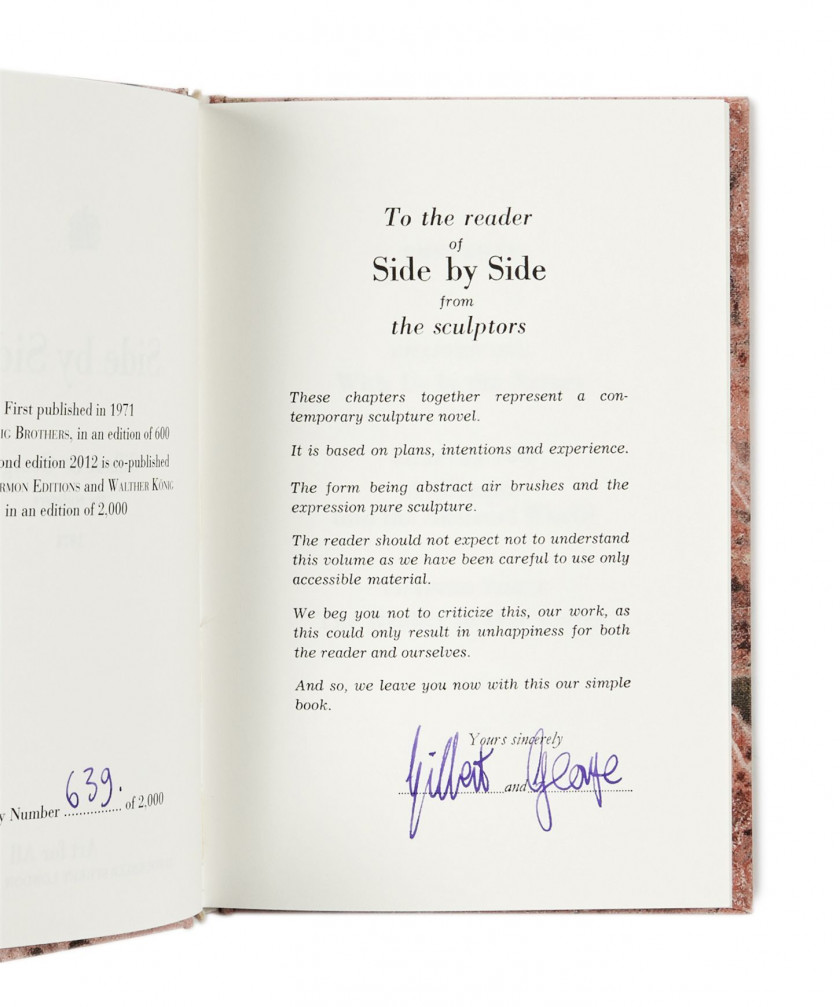 First published in 1971
BROTHERS, in an edition of 600
edition 2012 is co-published
EDITIONS and WALTHER KÖNIG
in an edition of 2,000
Number 639. of 2,000
To the reader
of
Side by Side
from
the sculptors
These chapters together represent a con-
temporary sculpture novel.
It is based on plans, intentions and experience.
The form being abstract air brushes and the
expression pure sculpture.
The reader should not expect not to understand
this volume as we have been careful to use only
accessible material.
We beg you not to criticize this, our work, as
this could only result in unhappiness for both
the reader and ourselves.
And so, we leave you now with this our simple
book.
Yours sincerely
Gilbert and George